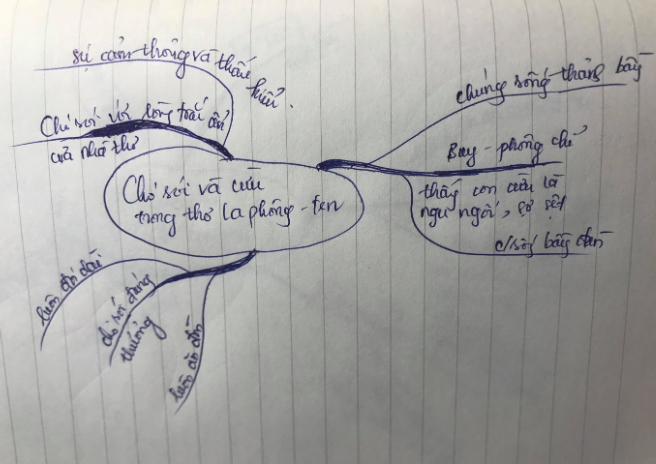 sự cảm thông và thấu hiểu.
Chó sói với lòng trắc ẩn
của nhà thơ
Chó sói và cừu
trong thơ La phông-ten
chúng sống thành bầy
Buy-phông chỉ
thấy con cừu là
ngu ngốc, sợ sệt
c/sống bầy đàn
luôn đói dài
chó sói đáng
thương
luôn